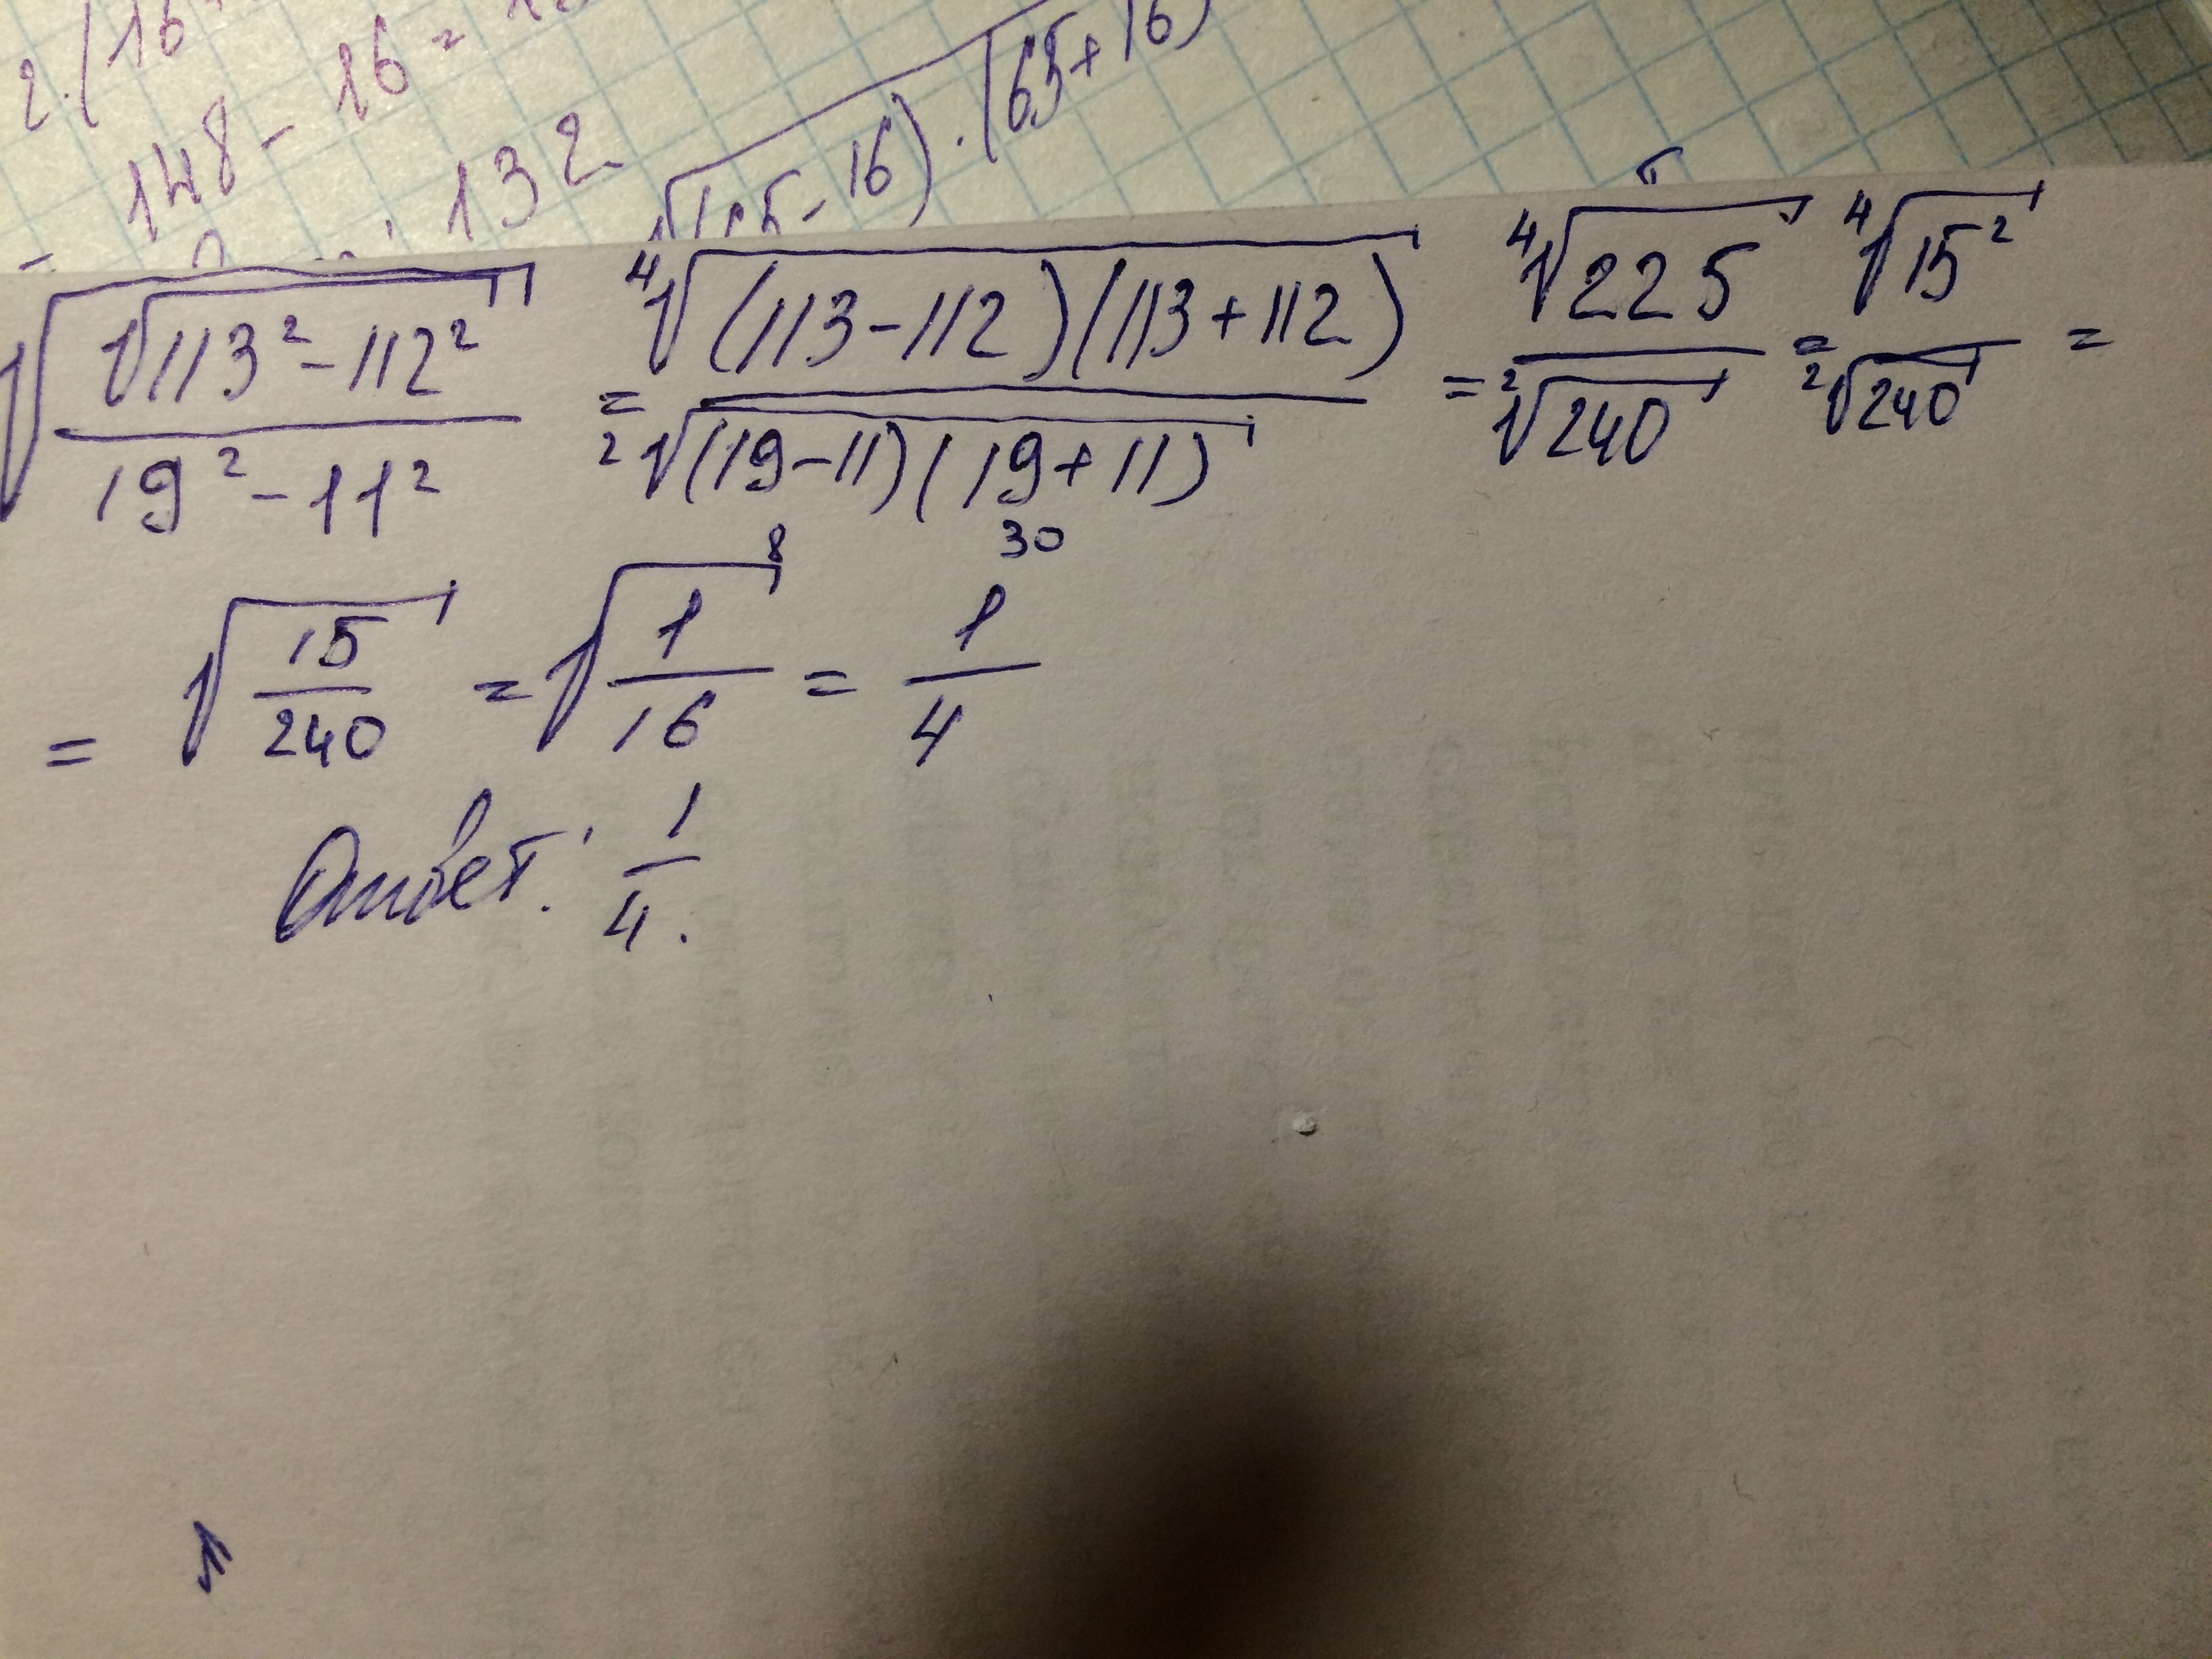 2·(16
148 - 16 =
132
√(65-16)·(65+16)
√(√(113² - 112²) / (19² - 11²)) = ⁴√((113-112)(113+112)) / ²√((19-11)(19+11)) = ⁴√225 / ²√240 = ⁴√15² / ²√240 =
30
8
= √(15/240) = √(1/16) = 1/4
Ответ: 1/4.